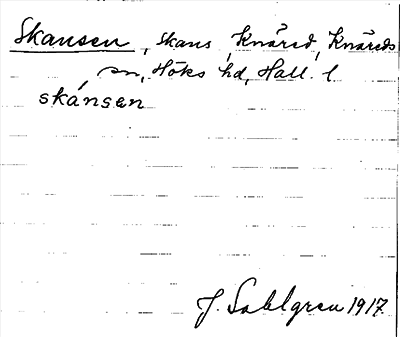 Skansen, skans, Knäred, Knäreds
sn, Höks hd, Hall. l
skánsen
J. Sahlgren 1917